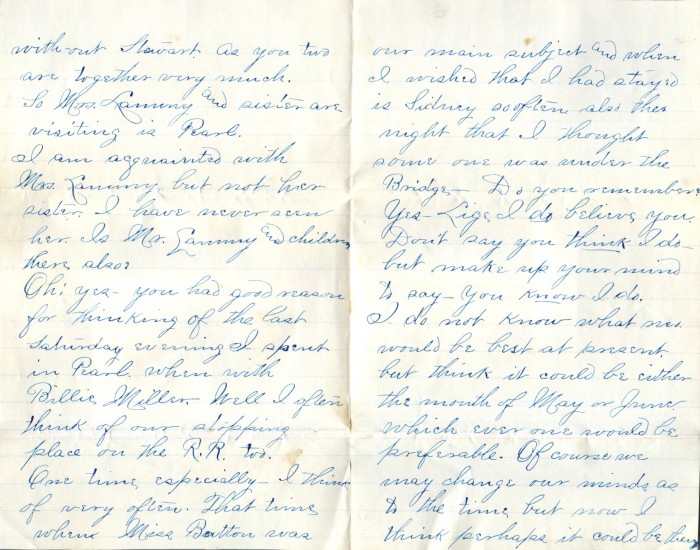 with-out Stewart. As you two
are together very much.
So Mrs. Lammy and sister are
visiting is Pearl.
I am acquainted with
Mrs. Lammy, but not her
sister. I have never seen
her. Is Mr. Lammy and children
there also?
Oh! yes- you had good reason
for thinking of the last
Saturday evening I spent
in Pearl. when with
Billie Miller. Well I often
think of our stopping
place on the R.R. too.
One time especially- I think
of very often. That time
when Miss Batton was
our main subject and when
I wished that I had stayed
is Sidney so often. also the
night that I thought
some one was under the
Bridge- Do you remember?
Yes- Lige, I do believe you.
Don't say you think I do-
but make up your mind
to say- You know I do.
I do not know what mo.
would be best at present.
but think it could be either
the month of May or June
which ever one would be
preferable. Of course we
may change our minds as
to the time but now I
think perhaps it could be then